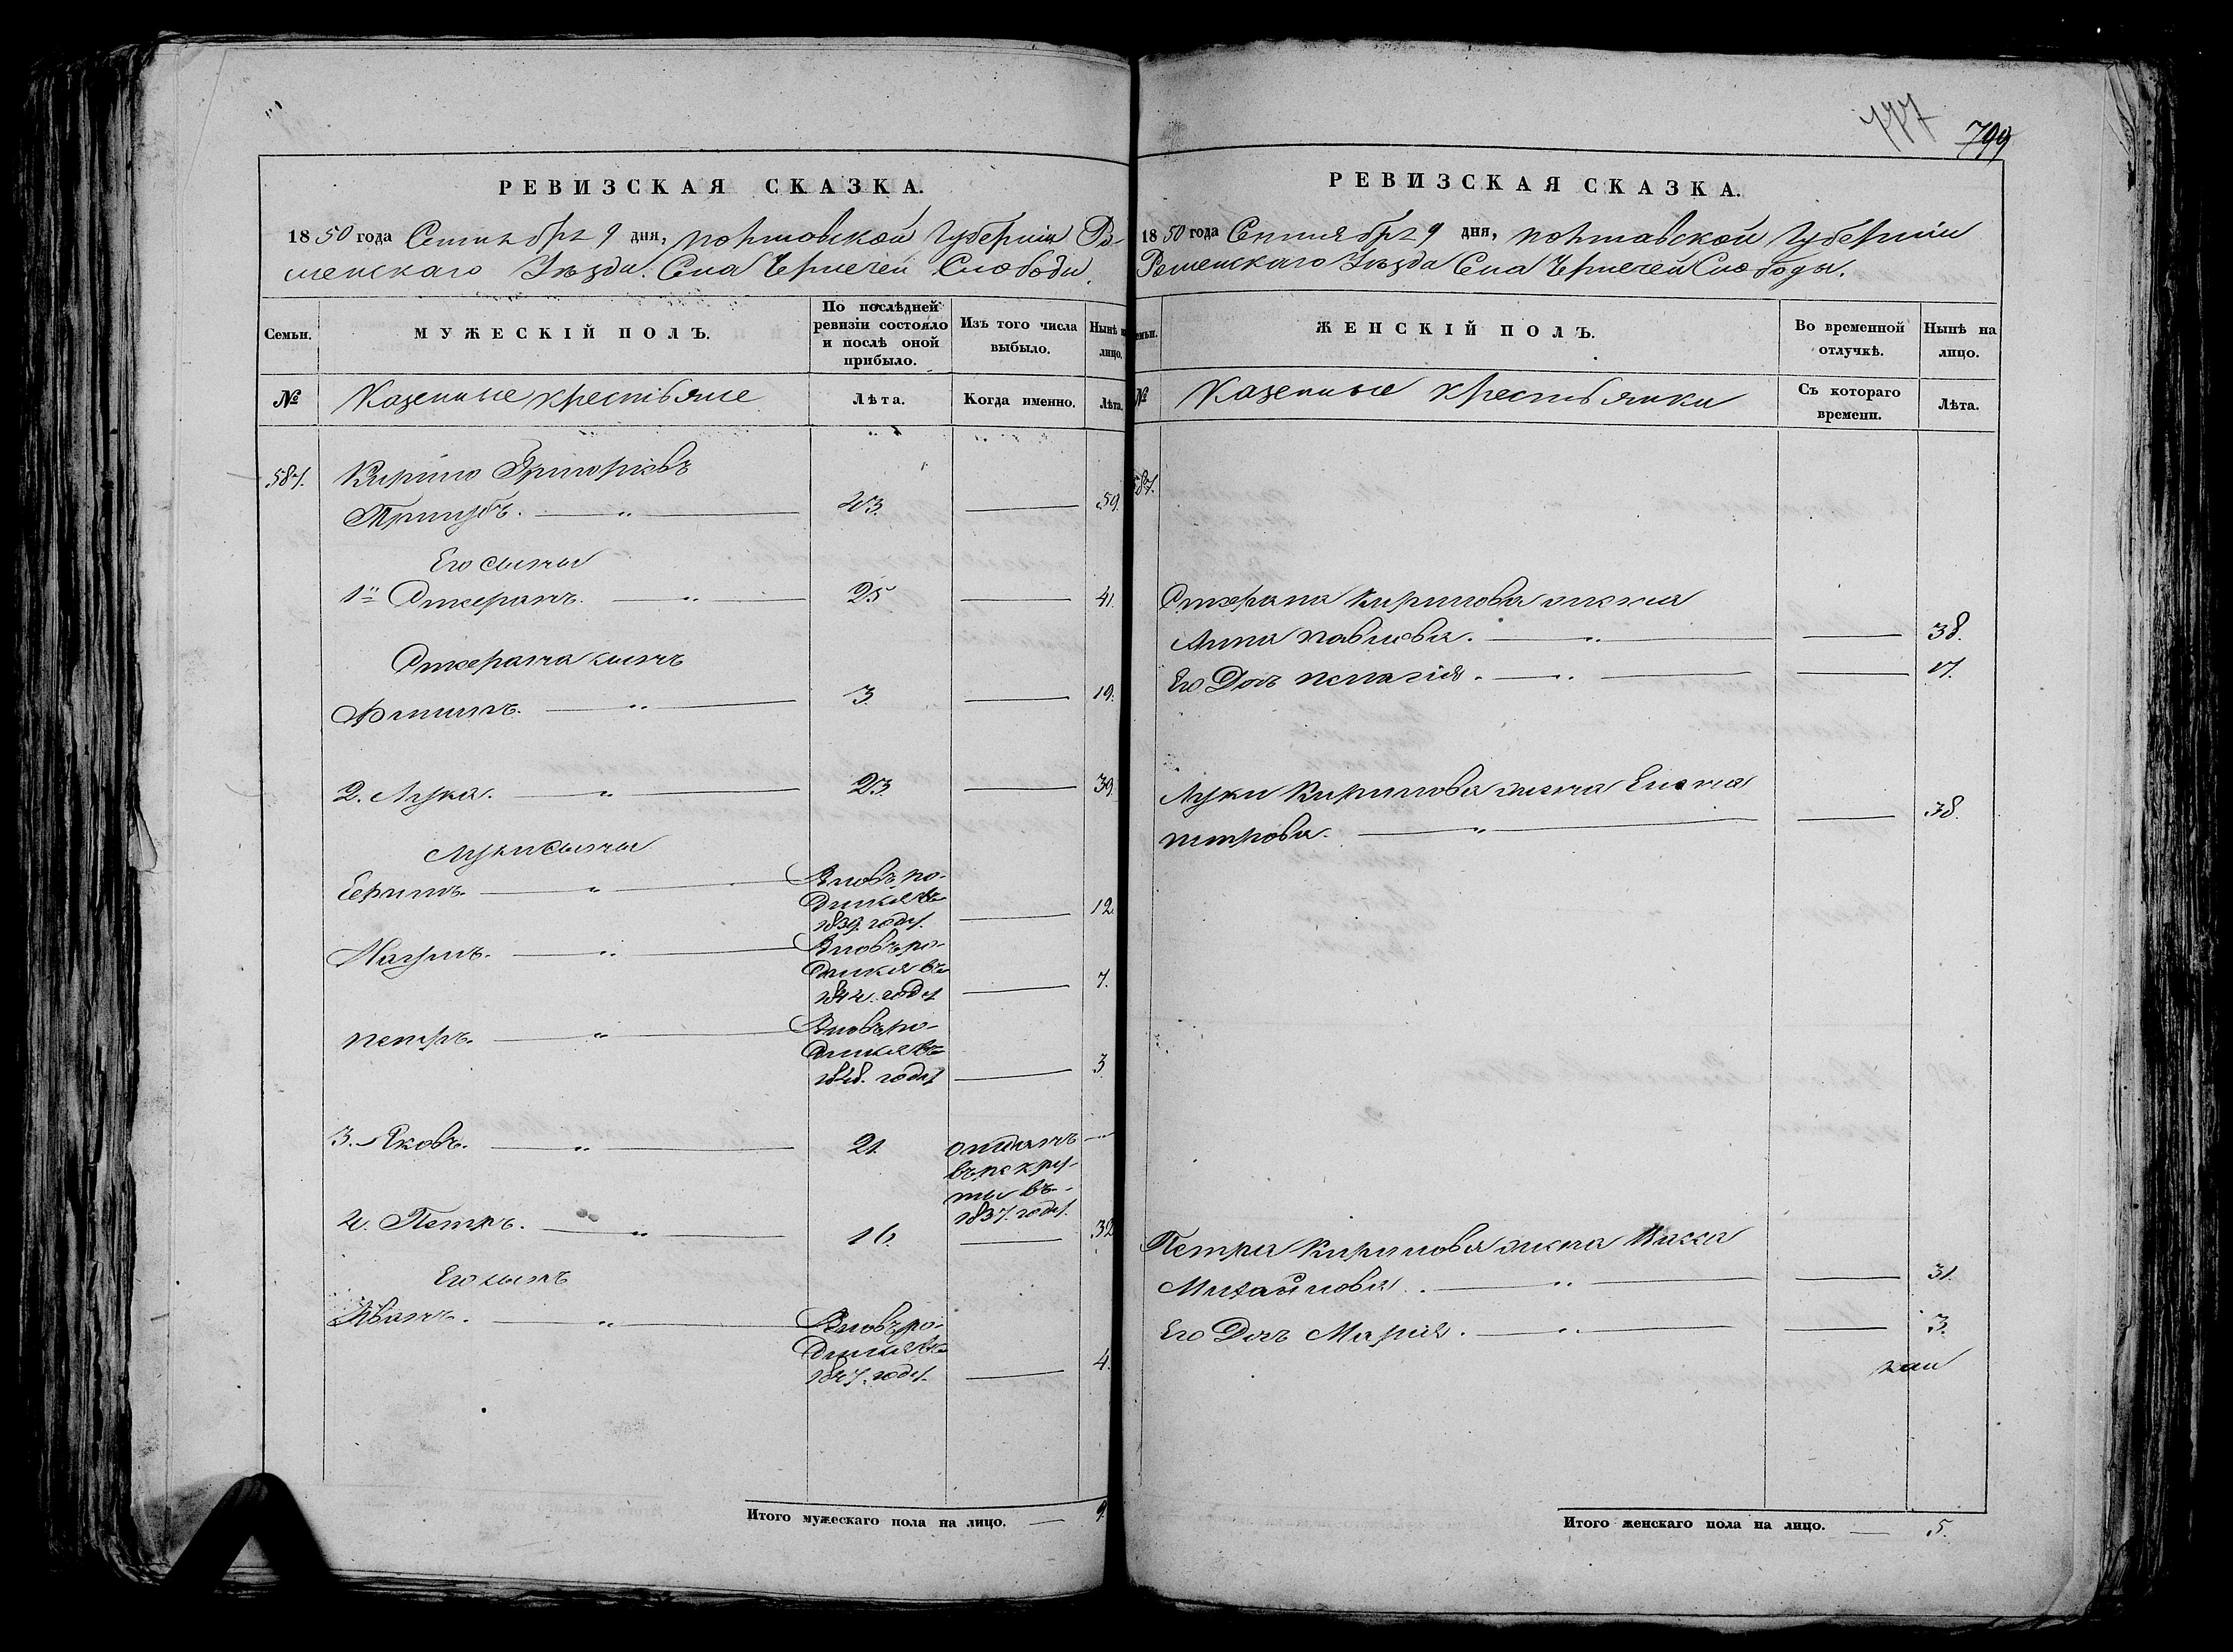 РЕВИЗСКАЯ СКАЗКА.
1850 года Сентября 9 дня, Полтавской Губернии Ро-
менскаго Уѣзда Села Чернечей Слободы.
Семьи.
МУЖЕСКІЙ ПОЛЪ.
По послѣдней ревизіи состояло и послѣ оной прибыло.
Изъ того числа выбыло.
Нынѣ на лицо.
№
Казенные крестьяне
Лѣта.
Когда именно.
Лѣта.
587. Кирило Григорьевъ
43. 59.
Его сыны
1й 25 41.
сынъ
Филипъ. 3. 19.
2. Лука. 23 39.
Луки сыны
Ефимъ. Вновь ро-
дился въ
1839. году. 12
Наумъ. Вновь ро-
дился въ
1844. году 7.
Петръ. Вновь ро-
дился въ
1848. году 3
3. Яковъ. 21 отданъ
въ рекру-
ты въ
1837. году.
4. Петръ. 16. 32
Его сынъ
Иванъ. Вновь ро-
дился въ
1847. году. 4.
Итого мужескаго пола на лицо. 9.
777
799
РЕВИЗСКАЯ СКАЗКА.
1850 года Сентября 9 дня, Полтавской Губернии
Роменскаго Уѣзда Села Чернечей Слободы.
Семьи.
ЖЕНСКІЙ ПОЛЪ.
Во временной отлучкѣ.
Нынѣ на лицо.
№
Казенные крестьянки
Съ котораго времени.
Лѣта.
587.
Кирилова жена
Анна Павлова. 38.
Его Дочь Пелагія. 17.
Луки Кирилова жена Елена
Петрова. 38.
Петра Кирилова жена Васса
Михайлова. 31.
Его Дочь Марія. 3.
Итого женскаго пола на лицо. 5.